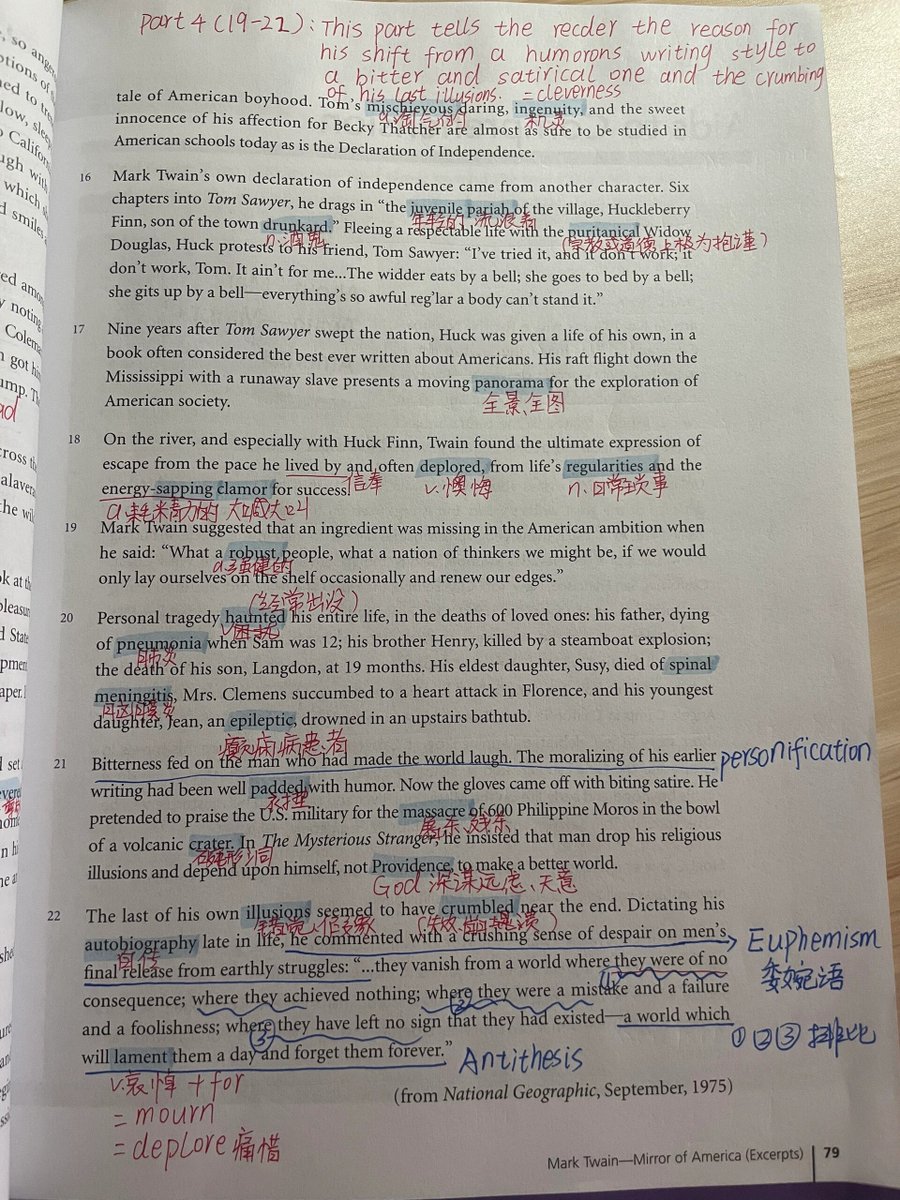 Part 4 (19-22): This part tells the recder the reason for
his shift from a humorons writing style to
a bitter and satirical one and the crumbing
of his last illusions. = cleverness
tale of American boyhood. Tom's mischievous daring, ingenuity, and the sweet
a.淘气的 机灵
innocence of his affection for Becky Thatcher are almost as sure to be studied in
American schools today as is the Declaration of Independence.
16 Mark Twain's own declaration of independence came from another character. Six
chapters into Tom Sawyer, he drags in "the juvenile pariah of the village, Huckleberry
年轻的 流浪者
Finn, son of the town drunkard." Fleeing a respectable life with the puritanical Widow
n.酒鬼 (宗教或道德上极为拘谨)
Douglas, Huck protests to his friend, Tom Sawyer: "I've tried it, and it don't work; it
don't work, Tom. It ain't for me...The widder eats by a bell; she goes to bed by a bell;
she gits up by a bell—everything's so awful reg'lar a body can't stand it."
17 Nine years after Tom Sawyer swept the nation, Huck was given a life of his own, in a
book often considered the best ever written about Americans. His raft flight down the
Mississippi with a runaway slave presents a moving panorama for the exploration of
American society.
全景、全图
18 On the river, and especially with Huck Finn, Twain found the ultimate expression of
escape from the pace he lived by and often deplored, from life's regularities and the
energy-sapping clamor for success.
信奉 v.懊悔 n.日常琐事
a.耗精力的 大喊大叫
19 Mark Twain suggested that an ingredient was missing in the American ambition when
he said: "What a robust people, what a nation of thinkers we might be, if we would
a.强健的
only lay ourselves on the shelf occasionally and renew our edges."
(经常出没)
20 Personal tragedy haunted his entire life, in the deaths of loved ones: his father, dying
v.困扰
of pneumonia when Sam was 12; his brother Henry, killed by a steamboat explosion;
肺炎
the death of his son, Langdon, at 19 months. His eldest daughter, Susy, died of spinal
meningitis, Mrs. Clemens succumbed to a heart attack in Florence, and his youngest
daughter, Jean, an epileptic, drowned in an upstairs bathtub.
癫痫病患者
21 Bitterness fed on the man who had made the world laugh. The moralizing of his earlier
personification
writing had been well padded with humor. Now the gloves came off with biting satire. He
pretended to praise the U.S. military for the massacre of 600 Philippine Moros in the bowl
of a volcanic crater. In The Mysterious Stranger, he insisted that man drop his religious
illusions and depend upon himself, not Providence, to make a better world.
God 深谋远虑、天意
22 The last of his own illusions seemed to have crumbled near the end. Dictating his
autobiography late in life, he commented with a crushing sense of despair on men's
自传
Euphemism
委婉语
final release from earthly struggles: "...they vanish from a world where they were of no
consequence; where they achieved nothing; where they were a mistake and a failure
and a foolishness; where they have left no sign that they had existed—a world which
① ② ③ 排比
will lament them a day and forget them forever."
Antithesis
v.哀悼 + for
= mourn
= deplore 痛惜
(from National Geographic, September, 1975)
Mark Twain—Mirror of America (Excerpts) 79